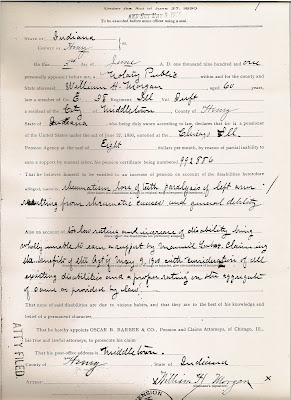 Under the Act of June 27, 1890
To be executed before some officer using a seal.
State of Indiana
County of Henry
On this 5th day of June A. D. one thousand nine hundred and one
personally appeared before me, a Notary Public within and for the county and
State aforesaid, William H. Morgan, aged 60 years,
late a member of the E 38 Regiment Ill Vol Inft
a resident of the City Middletown County of Henry
State of Indiana who being duly sworn according to law, declares that he is a pensioner
of the United States under the act of June 27, 1890, enrolled at the Chicago Ill.
Pension Agency at the rate of Eight dollars per month, by reason of partial inability to
earn a support by manual labor, his pension certificate being numbered 992886
That he believes himself to be entitled to an increase of pension on account of the disabilities heretofore
alleged, rheumatism loss of teeth paralysis of left arm
resulting from rheumatic causes and general debility
Also on account of rating and increase of disability being
wholly unable to earn a support by manual labor. Claiming
the benefits of the act of May 9, 1900 with consideration of all
existing disabilities and a proper rating on the aggregate
of same as provided by law.
That none of said disabilities are due to vicious habits, and that they are to the best of his knowledge and
belief of a permanent character.
That he hereby appoints OSCAR B. BARBER & CO., Pension and Claims Attorneys, of Chicago, Ill.,
his true and lawful attorneys, to prosecute his claim
That his post-office address is Middletown
County of Henry State of Indiana
Attest:
William H. Morgan
ATTY FILED
PENSION